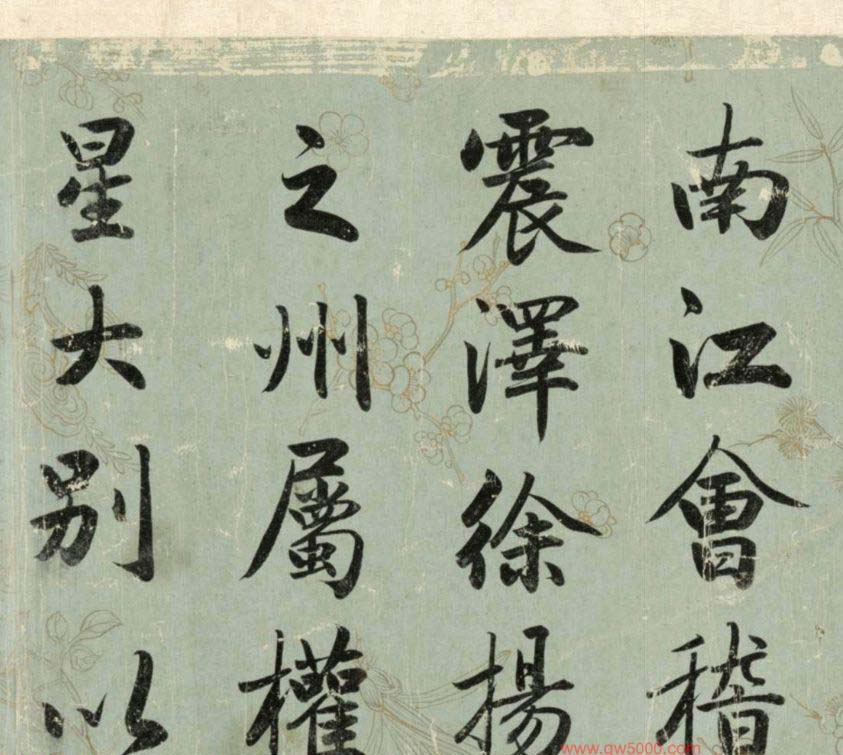 南江會稽
震澤徐揚
之州屬權
星大别以
www.gw5000.com